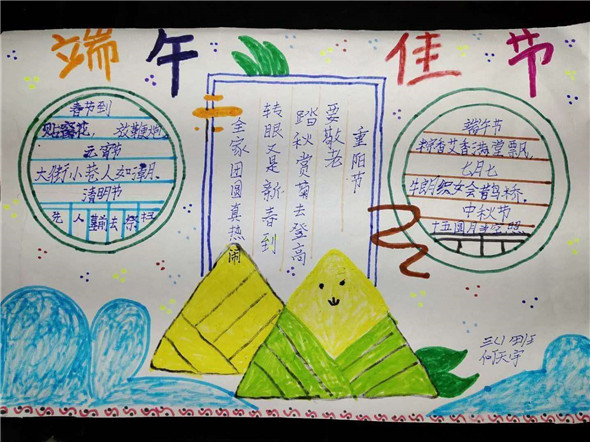 端午佳节
春节到
贴窗花，放鞭炮
元宵节
大街小巷人如潮，
清明节
先人墓前去祭扫
重阳节
要敬老
踏秋赏菊去登高
转眼又是新春到
全家团圆真热闹
端午节
粽香艾香满堂飘，
七月七
牛郎织女会鹊桥，
中秋节
十五圆月
三(1)班
何天宇